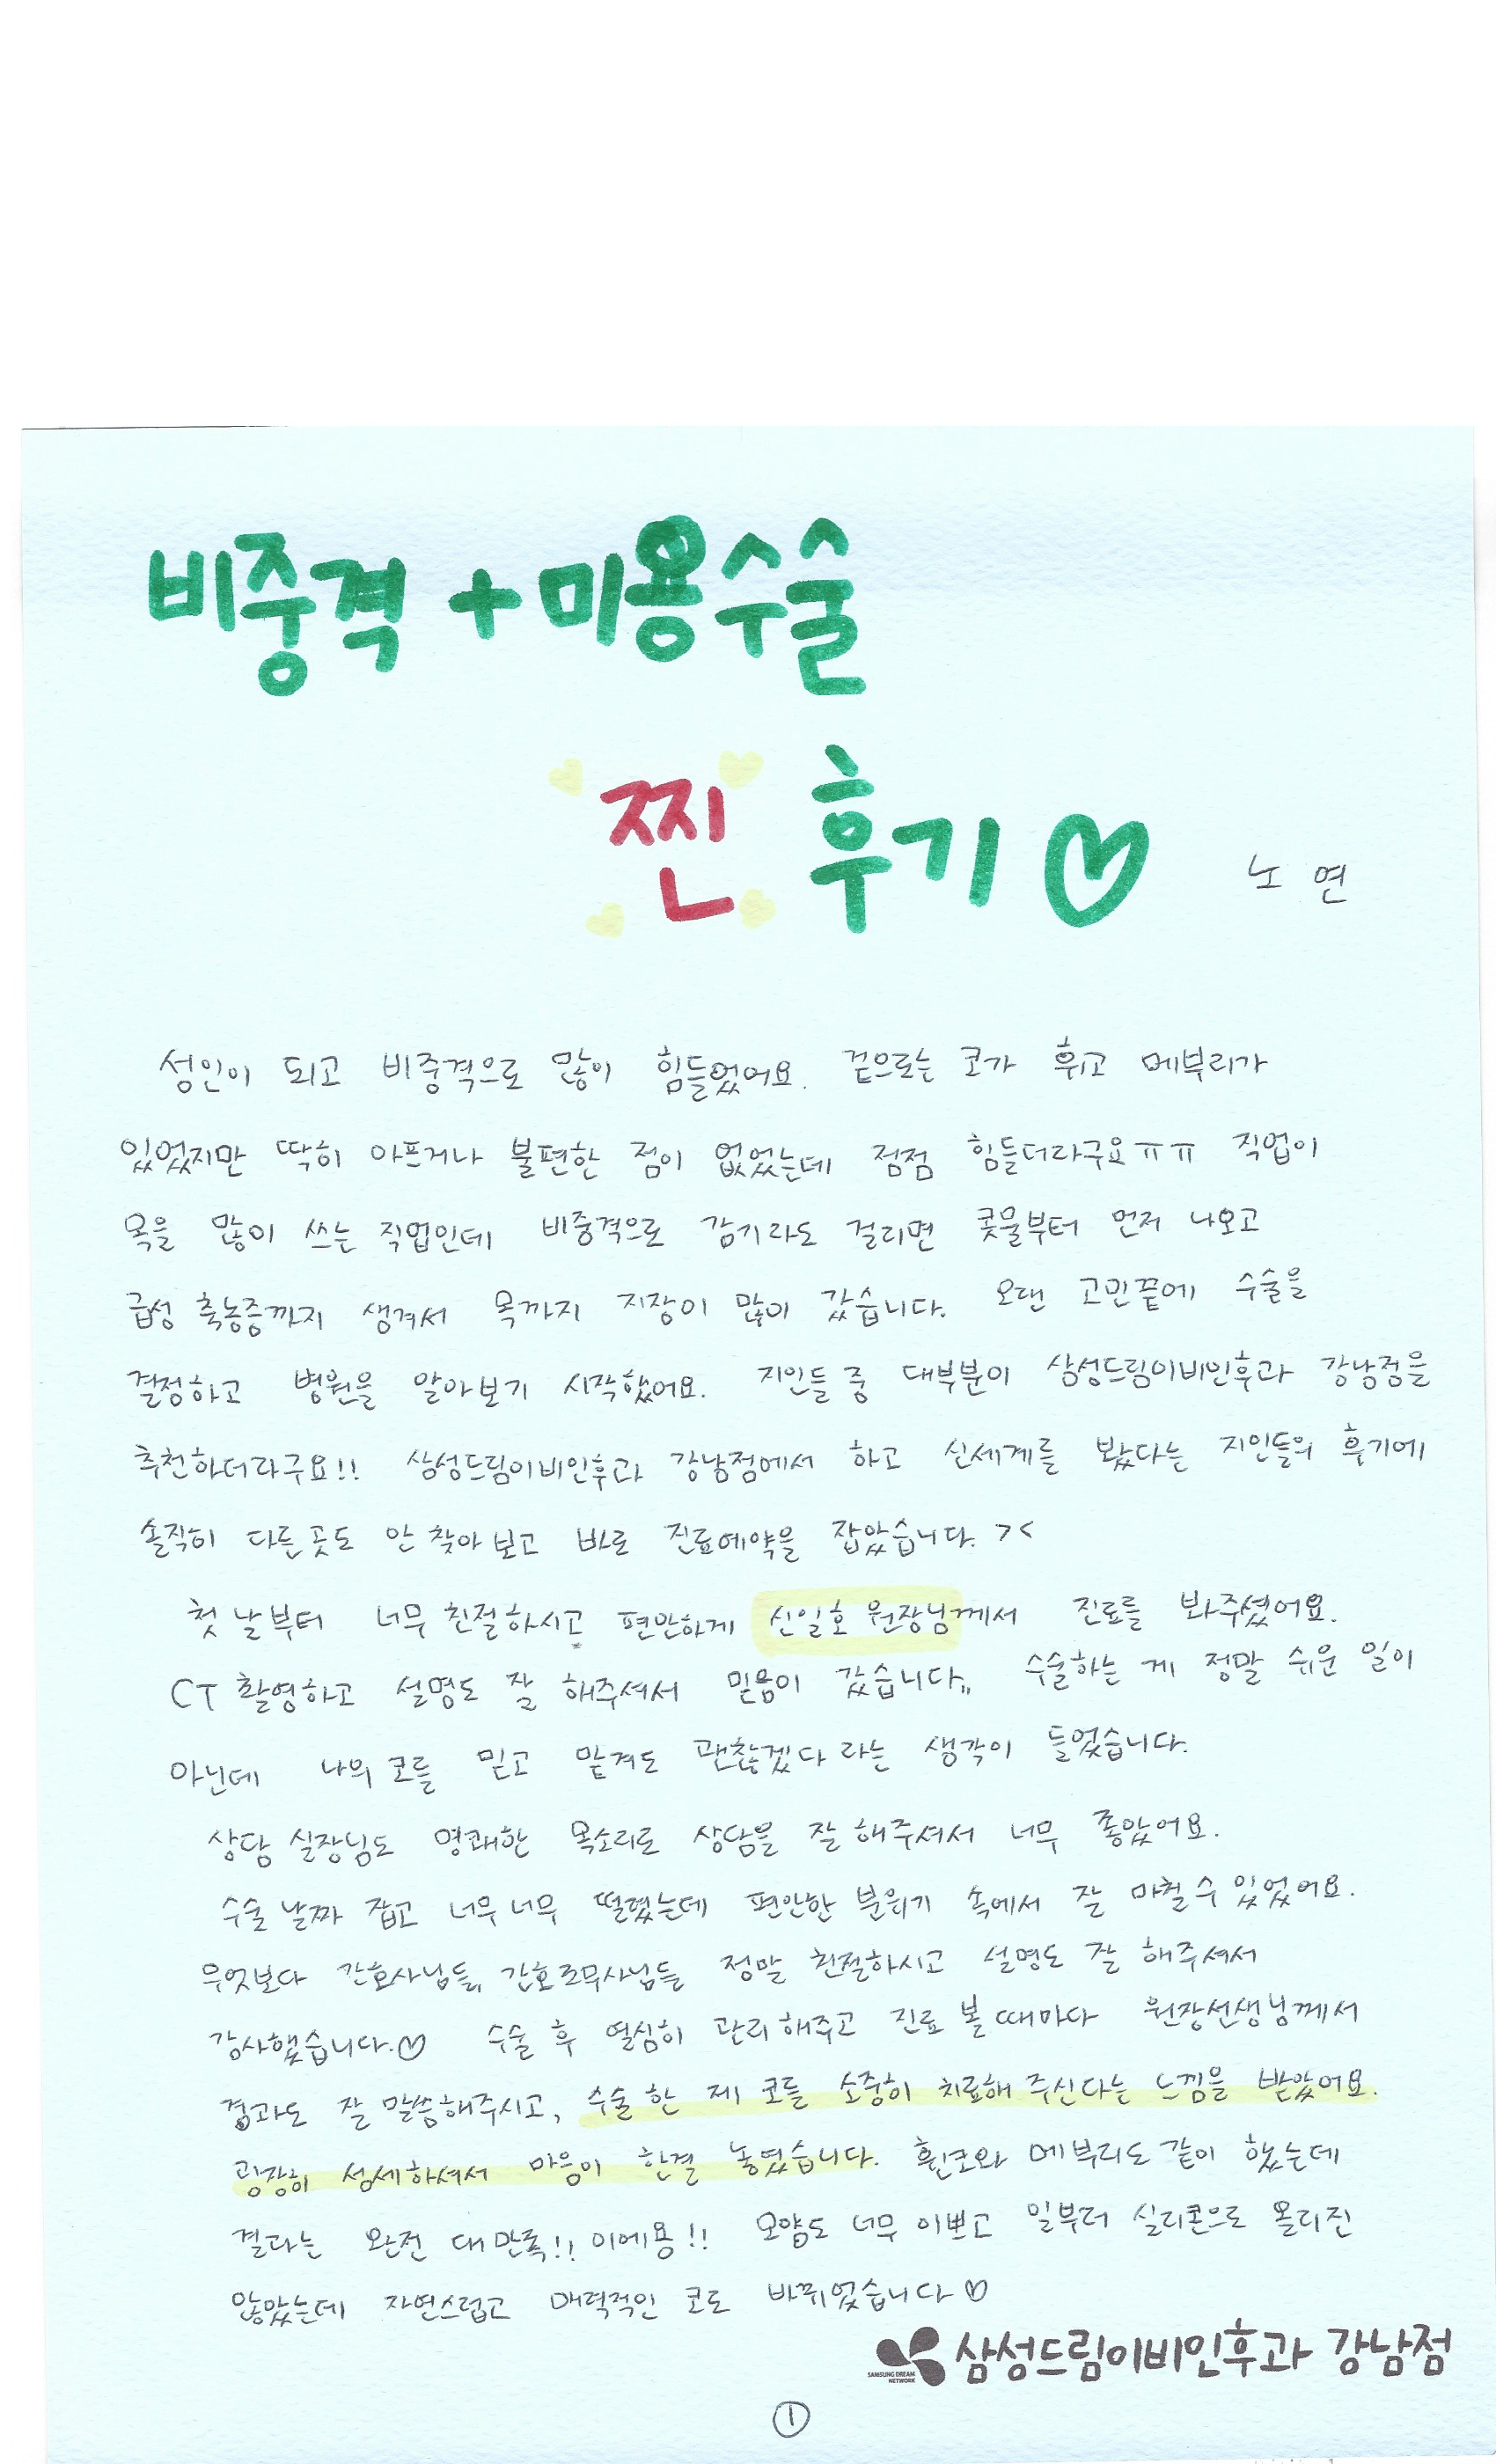 비중격 + 미용수술
찐 후기♡
노 연
성인이 되고 비중격으로 많이 힘들었어요. 겉으로는 코가 휘고 메부리가
있었지만 딱히 아프거나 불편한 점이 없었는데 점점 힘들더라구요ㅠㅠ 직업이
목을 많이 쓰는 직업인데 비중격으로 감기라도 걸리면 콧물부터 먼저 나오고
급성 축농증까지 생겨서 목까지 지장이 많이 갔습니다. 오랜 고민끝에 수술을
결정하고 병원을 알아보기 시작했어요. 지인들 중 대부분이 삼성드림이비인후과 강남점을
추천하더라구요!! 삼성드림이비인후과 강남점에서 하고 신세계를 봤다는 지인들의 후기에
솔직히 다른곳도 안 찾아보고 바로 진료예약을 잡았습니다. ><
첫 날부터 너무 친절하시고 편안하게 신일호 원장님께서 진료를 봐주셨어요.
CT 촬영하고 설명도 잘 해주셔서 믿음이 갔습니다,, 수술하는 게 정말 쉬운 일이
아닌데 나의 코를 믿고 맡겨도 괜찮겠다 라는 생각이 들었습니다.
상담 실장님도 명쾌한 목소리로 상담을 잘 해주셔서 너무 좋았어요.
수술 날짜 잡고 너무너무 떨렸는데 편안한 분위기 속에서 잘 마칠 수 있었어요.
무엇보다 간호사님들, 간호조무사님들 정말 친절하시고 설명도 잘 해주셔서
감사했습니다.♡ 수술 후 열심히 관리해주고 진료 볼 때마다 원장선생님께서
경과도 잘 말씀해주시고, 수술 한 제 코를 소중히 치료해 주신다는 느낌을 받았어요.
굉장히 섬세하셔서 마음이 한결 놓였습니다. 휜코와 메부리도 같이 했는데
결과는 완전 대만족!! 이에용!! 모양도 너무 이쁘고 일부러 실리콘으로 올리진
않았는데 자연스럽고 매력적인 코로 바뀌었습니다♡
SAMSUNG DREAM NETWORK 삼성드림이비인후과 강남점
①